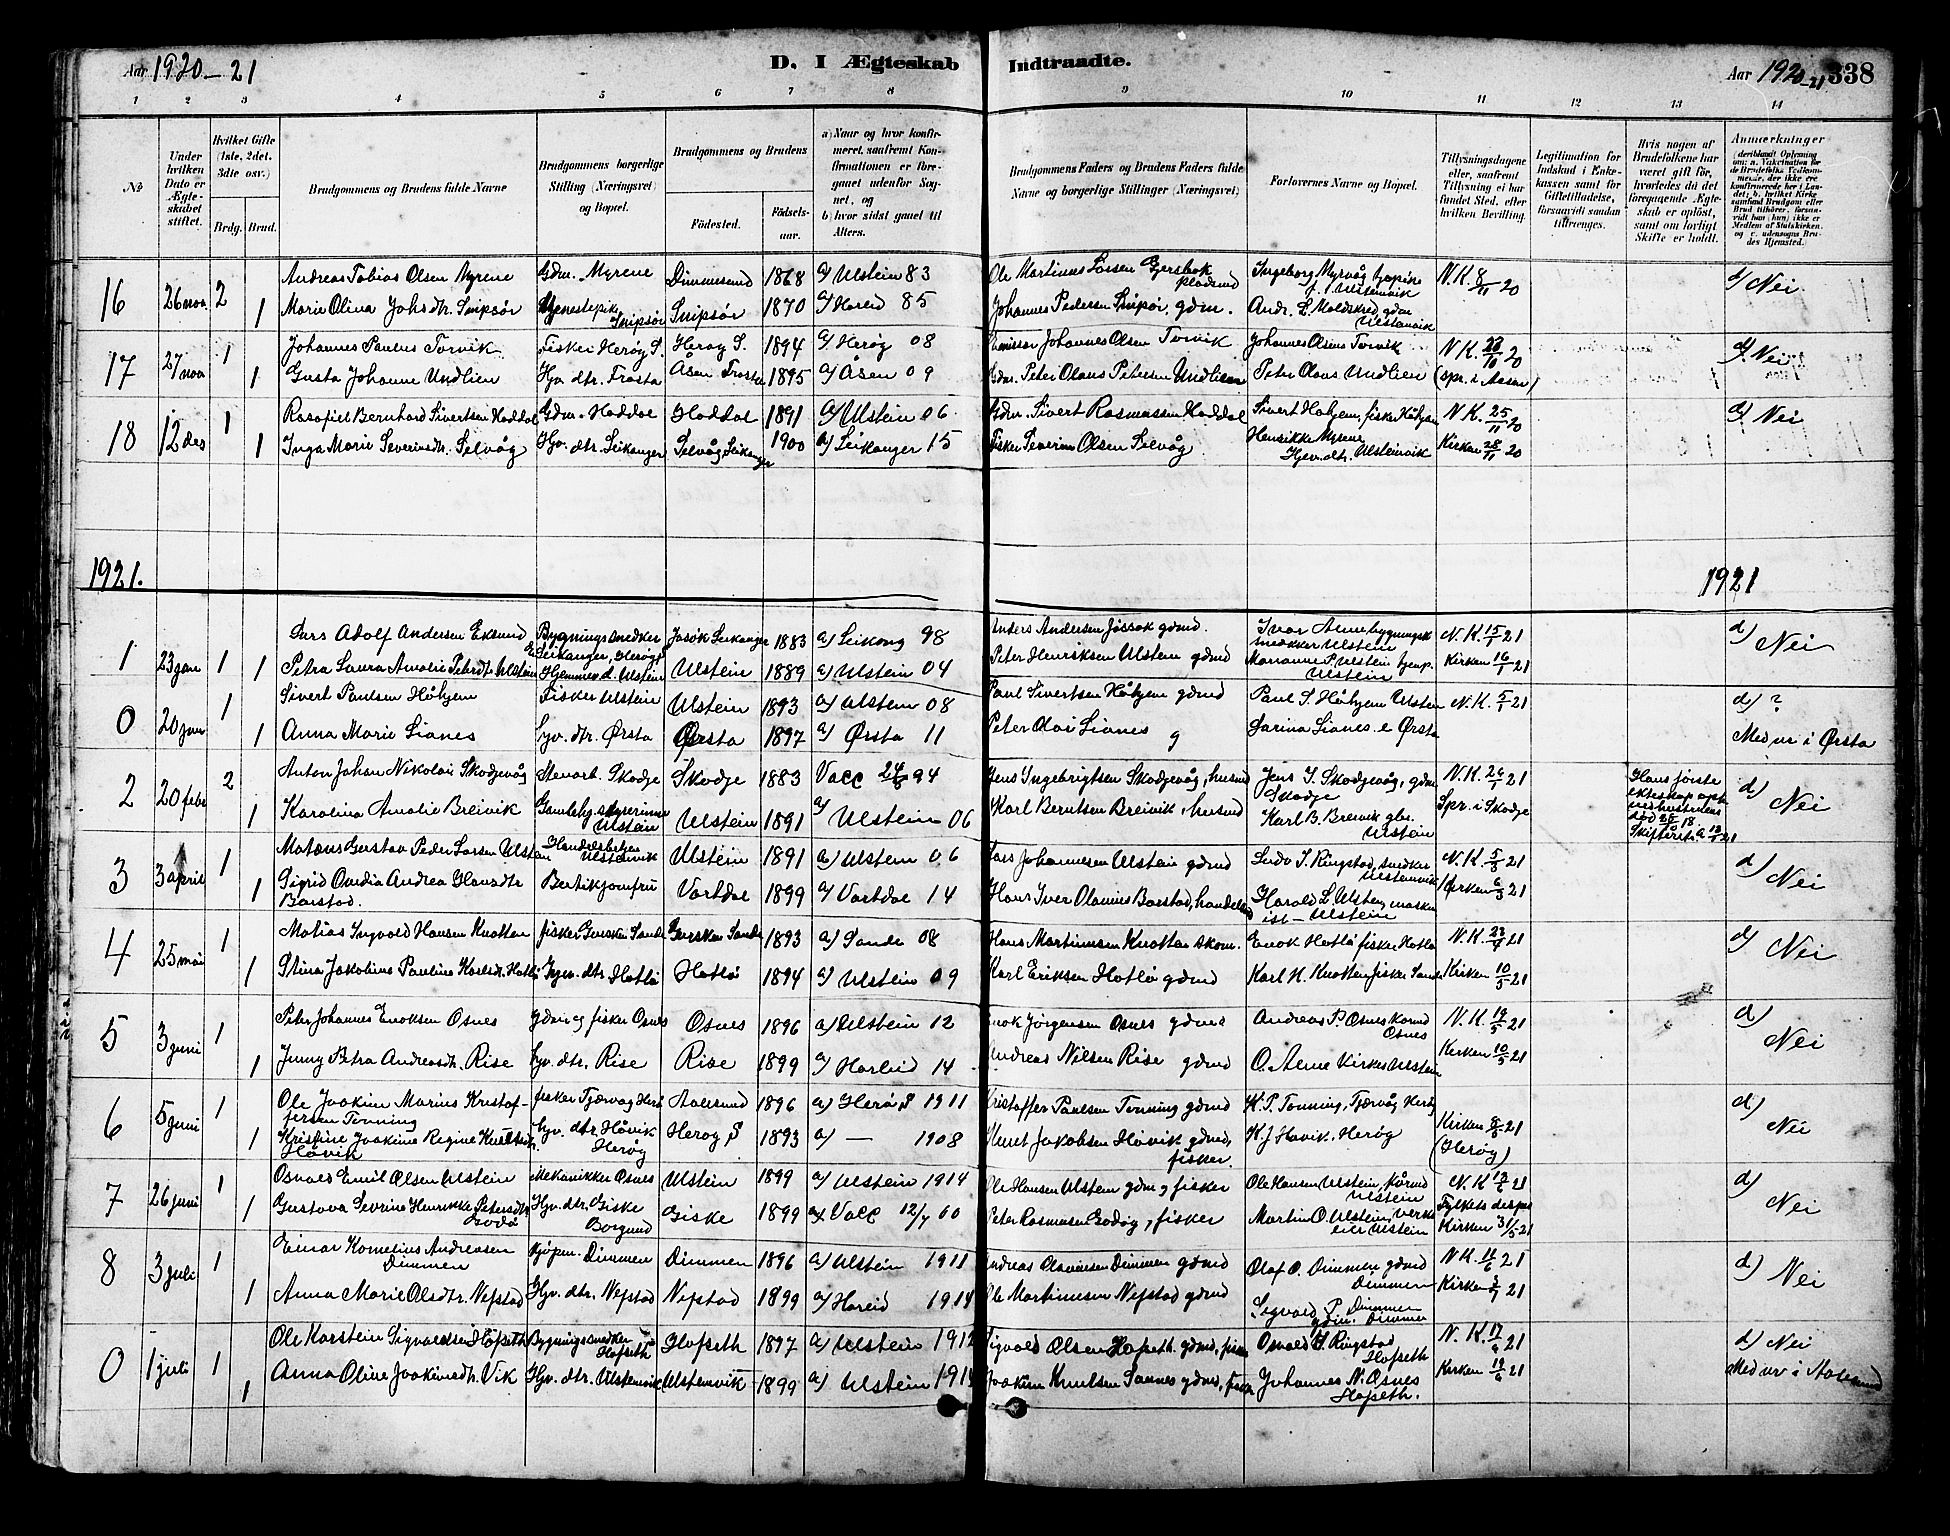 Aar 1920-21
D. I Ægteskab Indtraadte.
Aar 1920-21 338
1 2 3 4 5 6 7 8 9 10 11 12 13 14
No
Under hvilken Dato er Ægteskabet stiftet.
Hvilket Gifte (1ste, 2det, 3die osv.)
Brdg. Brud.
Brudgommens og Brudens fulde Navne
Brudgommens borgerlige Stilling (Næringsvei) og Bopæl.
Brudgommens og Brudens
Födested. Födselsaar.
a) Naar og hvor konfirmeret, saafremt Konfirmationen er foregaaet udenfor Sognet, og
b) hvor sidst gaaet til Alters.
Brudgommens Faders og Brudens Faders fulde Navne og borgerlige Stillinger (Næringsvei)
Forlovernes Navne og Bopæl.
Tillysningsdagene eller, saafremt Tillysning ei har fundet Sted, efter hvilken Bevilling.
Legitimation for Indskud i Enkekassen samt for Giftetilladelse, forsaavidt saadan tiltrænges.
Hvis nogen af Brudefolkene har været gift før, hvorledes da det foregaaende Ægteskab er oplöst, samt om lovligt Skifte er holdt.
Anmærkninger
16 26 nov. 2 Andreas Tobias Olsen Myrene Gdm. Myrene Dimmesund 1868 a) Ulstein 83 Ole Martinus Larsen N.K. 8/11 20 d) Nei
1 Marie Oliva Johsdtr. Snipsør Snipsør Snipsør 1870 a) Hareid 85 Johannes Pedersen Snipsør, gdm. Andr. L. Moldskred, gdm Ulsteinvik
17 27 nov 1 Johannes Paulus Torvik Fisker Herøy S. Herøy S. 1894 a) Herøy 08 Johannes Olsen Torvik Johannes Olsens Torvik N.K. 23/10 20 d) Nei
1 Gusta Johanne Undlien Hjv. dtr. Frosta Åsen Frosta 1895 a) Åsen 09 Gdm. Peter Olaus Petersen Undlien Peter Olaus Undlien (spr. i Aasen)
18 12 des 1 Bernhard Sivertsen Haddal Gdm. Haddal Haddal 1891 a) Ulstein 06 Gdm. Sivert Rasmussen Haddal Sivert Håhjem, fisker Håhjem N.K. 25/11 20 d) Nei
1 Inga Marie Severinsdtr. Selvåg Hjv. dtr. Leikanger Selvåg Leikanger 1900 a) Leikanger 15 Fisker Severin Olsen Selvåg Henrikke Myrene Hjv. dtr. Ulsteinvik Kirken 28/11 20
1921. 1921
1 23 jan 1 Lars Adolf Andersen Eksund Bygningssnedker Leikanger, Herøy Jøsok Leikanger 1883 a) Leikong 98 Anders Andersen Jøssok gdmd. Ivar Ame bygningssnekker Ulstein N.K. 15/1 21 d) Nei
1 Petra Laura Amalie Petersdtr Ulstein Hjemmev. d. Ulstein Ulstein 1889 a) Ulstein 04 Peter Henriksen Ulstein gdmd Marianne P. Ulstein tjenp. Ulstein Kirken 16/1 21
0 20 jan 1 Sivert Paulsen Håhjem Fisker Ulstein Ulstein 1893 a) Ulstein 08 Paul Sivertsen Håhjem gdmd Paul S. Håhjem Ulstein N.K. 5/1 21 d) ?
1 Anna Marie Lianes Hjv. dtr. Ørsta Ørsta 1897 a) Ørsta 11 Peter Olai Lianes g Karina Lianes e Ørsta Med ur i Ørsta
2 20 febr 2 Anton Johan Nikolai Skodjevåg Stenarb. Skodje Skodje 1883 Vacc 24/6 94 Jens Ingebrigtsen Skodjevåg, husmd Jens J. Skodjevåg, gdm Skodje N.K. 26/1 21 Hans første ekteskap opl. ved hustruens død 25/8 18. Skifteatt. 13/1 21 d) Nei
1 Karolina Amalie Breivik Ulstein Ulstein 1891 a) Ulstein 06 Karl Berntsen Breivik, husmd Karl B. Breivik gbr. Ulstein Spr. i Skodje
3 3 april 1 Mateus Gustav Peder Larsen Ulstein Handelsbetjen Ulsteinvik Ulstein 1891 a) Ulstein 06 Lars Johannesen Ulstein gdmd Ludv. S. Ringstad, snedker Ulsteinvik N.K. 5/3 21 d) Nei
1 Sigrid Ovidia Andrea Hansdtr Barstad. Butikjomfru Vartdal 1899 a) Vartdal 14 Hans Iver Olanius Barstad, handelsmd Harald L. Ulstein, maskinist - Ulstein Kirken 6/3 21
4 25 mai 1 Matias Ingvald Hansen Knotten fisker Gursken Sande Gursken Sande 1893 a) Sande 08 Hans Martinusen Knotten skom. Enok Hatlø fisker Hatlø N.K. 23/4 21 d) Nei
1 Stina Jakobine Paulina Karlsdtr. Hatlø Hjv. dtr Hatlø Hatlø 1894 a) Ulstein 09 Karl Eriksen Hatlø gdmd Karl H. Knotten fisker Sande Kirken 10/5 21
5 3 juni 1 Peter Johannes Enoksen Osnes gdm og fisker Osnes Osnes 1896 a) Ulstein 12 Enok Jørgensen Osnes gdmd Andreas P. Osnes kårmd Osnes N.K. 19/5 21 d) Nei
1 Jenny Petra Andreasdtr. Rise hjv. dtr. Rise Rise 1899 a) Hareid 14 Andreas Nilsen Rise gdmd O. Ame Kirkes. Ulstein Kirken 10/5 21
6 5 juni 1 Ole Joakim Marius Kristoffersen Tonning fisker Tjørvåg Herø Aalesund 1896 a) Herø S 1911 Kristoffer Paulsen Tonning gdmd K. P. Tonning, Tjørvåg Herøy Kirken 8/5 21 d) Nei
1 Kristine Joakime Regine Knutsdtr. Håvik hjv. dtr. Håvik Herøy Herøy S 1893 a) — 1908 Knut Jakobsen Håvik gdmd, fisker. K. J. Håvik, Herøy (Herøy)
7 26 juni 1 Osvald Emil Olsen Ulstein Mekanikker Osnes Ulstein 1899 a) Ulstein 1914 Ole Hansen Ulstein gdm og fisker Ole Hansen Ulstein, kårmd Ulstein N.K. 13/6 21 d) Nei
1 Gustava Sevrine Henrikke Petersdtr Godø Hjv. dtr. Giske Borgund Giske 1899 Vacc 12/7 00 Peter Rasmusen Godøy, fisker Martin O. Ulstein, verkseier Ulstein Fylkets despos Kirken 31/5 21
8 3 juli 1 Einar Kornelius Andreasen Dimmen Kjøpm. Dimmen Dimmen 1896 a) Ulstein 1911 Andreas Olavinsen Dimmen gdmd Olaf O. Dimmen gdmd Dimmen N.K. 11/6 21 d) Nei
1 Anna Marie Olsdtr. Nesstad Hjv. dtr. Nesstad Nesstad 1899 a) Hareid 1914 Ole Martinusen Nesstad gdmd Sigvald P. Dimmen gdm. Dimmen Kirken 3/7 21
0 1 juli 1 Ole Karstein Sigvaldsen Hofseth Bygningssnedker Hofseth Hofseth 1897 a) Ulstein 1912 Sigvald Olsen Hofseth gdmd, fisker Osvald S. Ringstad Hofseth N.K. 17/6 21 d) Nei
1 Anna Oline Joakimsdtr. Vik Hjv. dtr. Ulsteinvik Ulsteinvik 1899 a) Ulstein 1914 Joakim Knutsen Sannes gdmd, fisker Johannes N. Osnes Hofseth. Kirken 19/6 21 Med ur i Aalesund